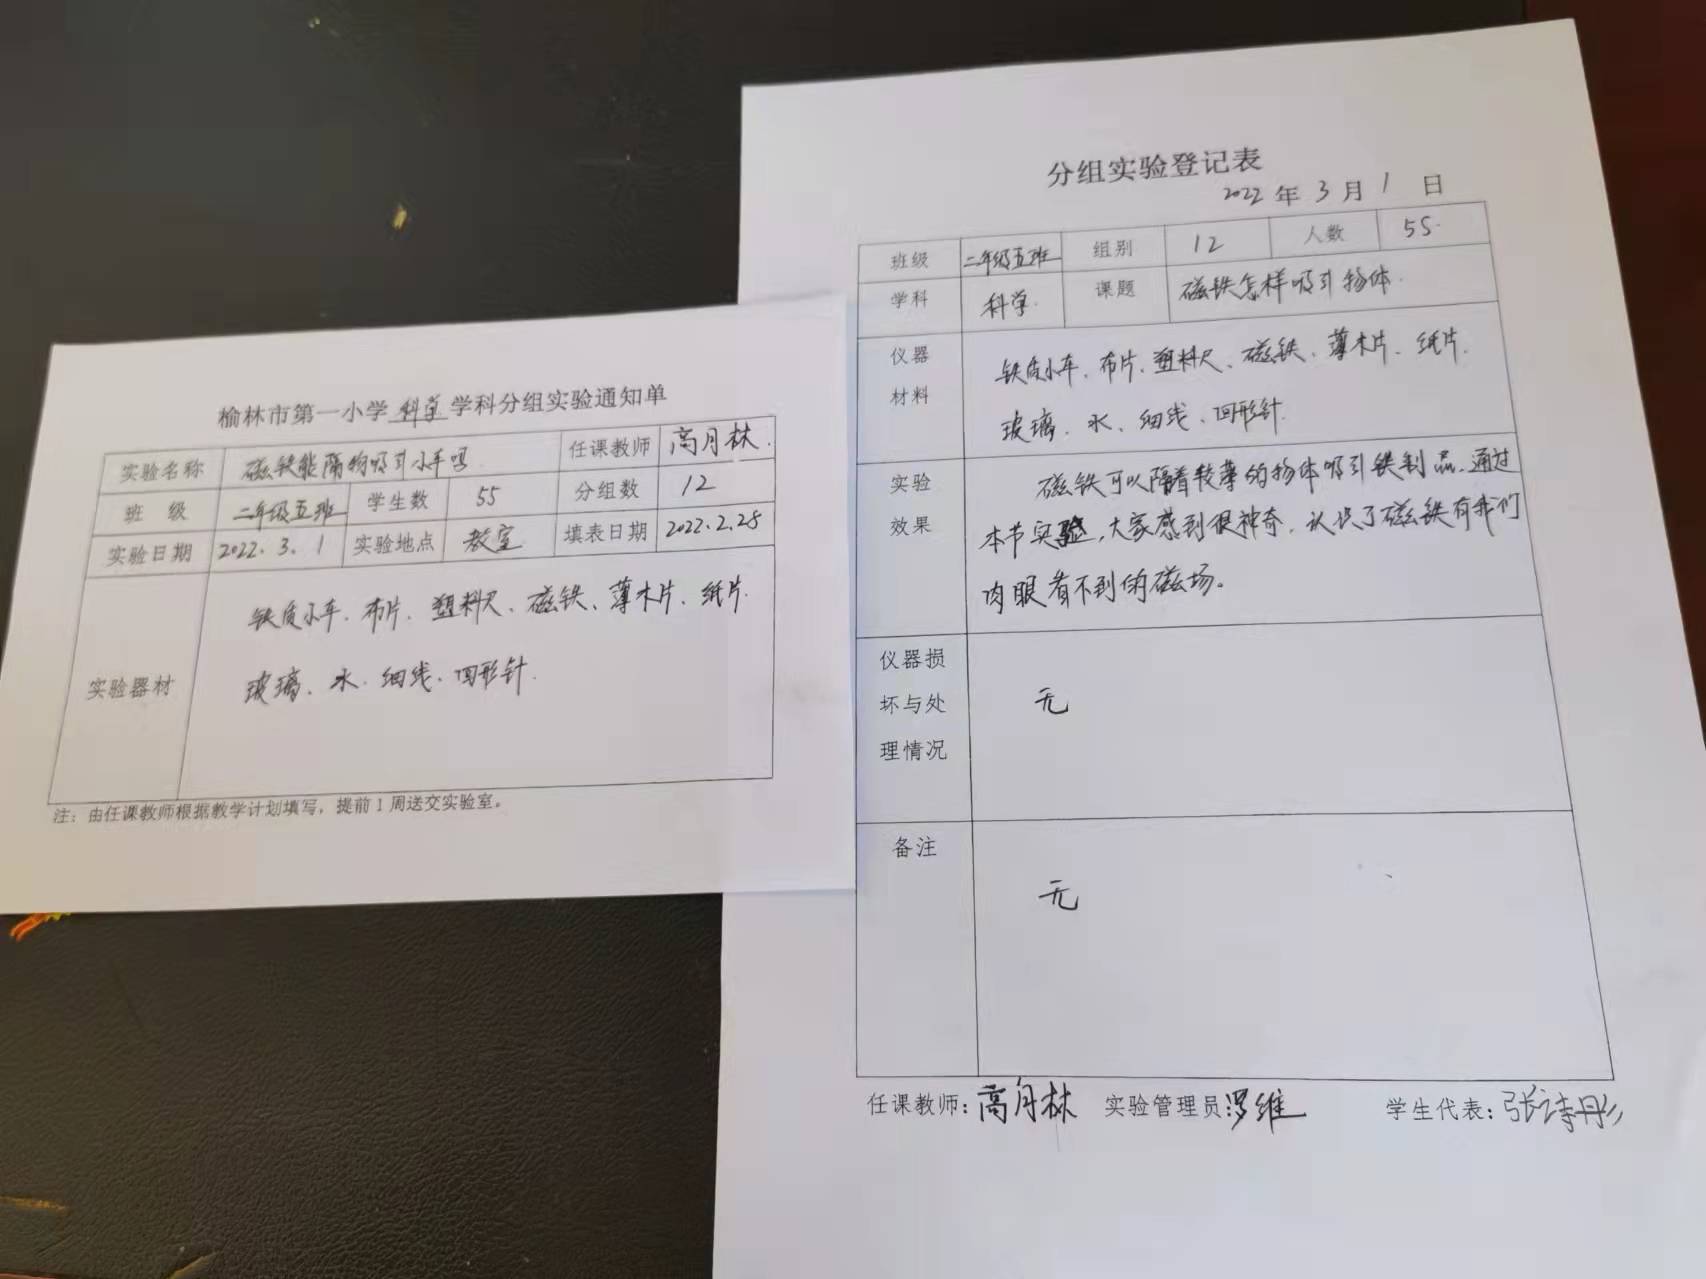 榆林市第一小学科学学科分组实验通知单
实验名称 磁铁能隔物吸引小车吗 任课教师 高月林
班 级 二年级五班 学生数 55 分组数 12
实验日期 2022.3.1 实验地点 教室 填表日期 2022.2.28
铁质小车、布片、塑料尺、磁铁、薄木片、纸片.
实验器材 玻璃、水、细线、回形针.
注：由任课教师根据教学计划填写，提前1周送交实验室。
分组实验登记表
2022年3月1日
班级 二年级五班 组别 12 人数 55.
学科 科学. 课题 磁铁怎样吸引物体.
仪器 铁质小车、布片、塑料尺、磁铁、薄木片、纸片.
材料 玻璃、水、细线、回形针.
实验 磁铁可以隔着较薄的物体吸引铁制品.通过
效果 本节实验,大家感到很神奇,认识了磁铁有我们
肉眼看不到的磁场。
仪器损
坏与处 无
理情况
备注
无
任课教师：高月林 实验管理员罗维 学生代表：张诗彤